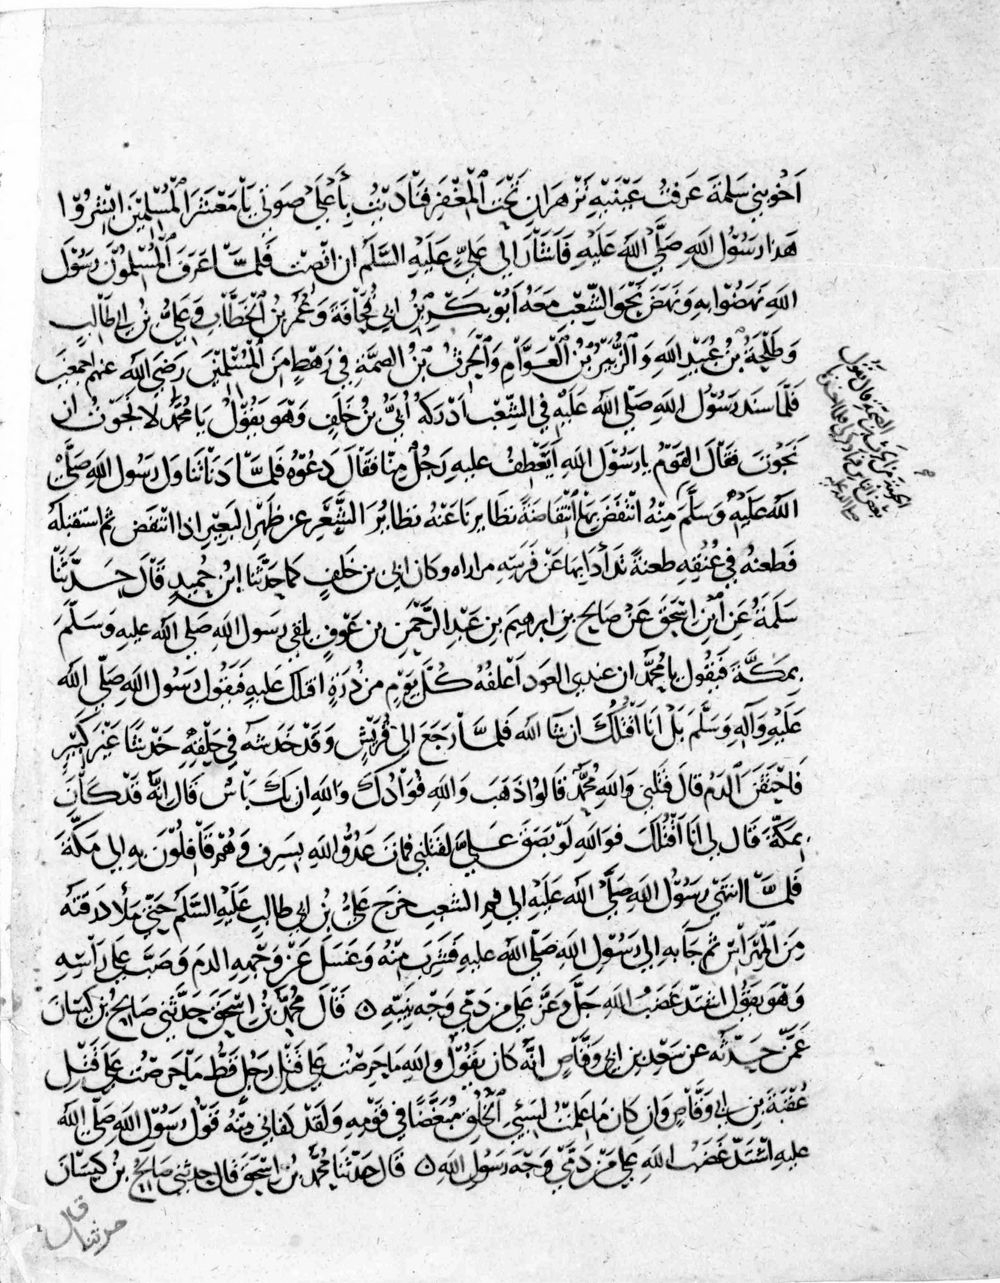 اَخُو بني سَلِمَةَ عَرفتُ عَيْنَيْهِ تَزْهَرَانِ تَحْتَ الْمِغْفَرِ فَنَادَيْتُ بِأَعْلَى صَوْتِي يَا مَعْشَرَ الْمُسْلِمِيْنَ ابْشِرُوْا
هَذا رَسُوْل اللهِ صَلَّى اللهُ عَلَيْهِ فَاَشَارَ اِلى عَلِيٍّ عَلَيْهِ السَّلَمُ ان انْصِتْ فَلمَّا عَرَفَ الْمُسْلِمُوْنَ رَسُوْلَ
اللهِ نَهَضُوْا بِهِ وَنَهَضَ نَحْوَ الشِّعْبِ مَعَهُ اَبُوْ بَكْرِ بْنُ ابي قُحَافَةَ وَعُمَرُ بْنُ الْخَطَّابِ وَعَلِيُّ بْنُ ابي طَالِبٍ
وَطَلْحَةُ بْنُ عُبَيْدِ اللهِ وَالزُّبَيْرُ بْنُ الْعَوَّامِ وَالْحَرِثُ بْنُ الصِّمَّةِ فِي رَهْطٍ مِنَ الْمُسْلِمِيْنَ رَضِيَ الله عنهم اجمعين
فَلَمَّا سند رَسُوْلُ اللهِ صَلّى اللهُ عَلَيْهِ فِي الشِّعْبِ اَدْرَكَهُ اُبَيُّ بْنُ خَلَفٍ وَهُوَ يَقُوْلُ يَا مُحَمَّدُ لا نَجَوْتُ ان
نَجَوْتَ فَقَالَ الْقَوْمُ يا رَسُوْلَ اللهِ اَيَعْطِفُ عليهِ رَجُلٌ مِنّا فَقَالَ دَعُوْهُ فَلمَّا دَنَا تَنَاوَلَ رَسُول اللهِ صَلَّى
اللهُ عَلَيْهِ وَسَلَّمَ مِنْهُ انْتَفَضَ بِهَا انْتِفَاضَةً تطَايَرنَا عَنْهُ تطَايُرَ الشَّعْرِ عن ظَهْرِ الْبَعِيْرِ اذا انْتَفَضَ ثم اسْتَقْبَلَهُ
فَطَعنهُ فِي عُنُقِهِ طَعنةً تَدَأْدَأَ بِهَا عَنْ فَرَسِهِ مرارا وكان ابي بن خَلَفٍ كما حَدَّثَنا ابْنُ حُمَيدٍ قَالَ حَدَّثَنَا
سَلَمَةُ عَنِ ابْنِ اسْحَقَ عَنْ صَالِحِ بْنِ ابرهيمَ بنِ عَبْدِ الرَّحْمَنِ بن عَوْفٍ يلقى رَسول اللهِ صَلى الله عليهِ وَسَلَّمَ
بِمَكَّةَ فَيَقُولُ يا مُحَمَّدُ ان عندي العود اَعْلِفُهُ كُلَّ يَوْمٍ من ذُرَةٍ اقتلك عَليهِ فَيَقُول رَسُول اللهِ صَلّى الله
عَلَيْهِ وَآلِهِ وَسَلَّمَ بَلْ اَنَا اَقْتُلُكَ ان شَا الله فَلمَّا رَجَعَ الى قُرَيْشٍ وَقَدْ خَدَشه فِي حَلْقِهِ خَدْشًا غَيْرَ كَبِيْرٍ
فَاحْتَقَنَ الدَمُ قالَ قَتَلني وَاللهِ مُحَمَّدٌ قالُوا ذَهَبَ وَاللهِ فُؤَادُكَ وَاللهِ ان بِكَ بَاسٌ قالَ انَّهُ قَدْ كَانَ
بِمكّةَ قَال لي انا اَقْتُلكَ فوَاللهِ لَوْ بَصَقَ عَلَيَّ لقتلني فمَاتَ عَدُوُّ اللهِ بِسَرِف وَهُمْ قَافِلُوْنَ بِهِ الى مَكَّةَ
فَلمَّا انتهى رَسُوْلُ اللهِ صَلّى اللهُ عَلَيْهِ الى فمِ الشعب خرَجَ عَلِيُّ بْنُ ابي طالبٍ عَلَيْهِ السَّلَمُ حَتّى مَلأَ درقته
مِنَ الْمِهْرَاسِ ثم جَآ بِهِ الى رَسُوْلِ اللهِ صَلّى الله عليهِ فَشَرِبَ مِنْهُ وَغَسَلَ عَنْ وَجْهِهِ الدمَ وَصَبَّ على رَأسِهِ
وَهُوَ يَقُوْلُ اشتدّ غَضَبُ اللهِ جَلّ وعَزَّ على من دَمّى وَجْه نَبِيِّهِ ۞ قَالَ مُحَمَّدُ بْنُ اسْحَقَ حَدَّثَنِي صَالِحُ بْن كَيْسَانَ
عَمَّنْ حَدّثَهُ عن سَعْدِ بنِ ابي وَقَّاصٍ انَّهُ كانَ يَقُوْلُ وَاللهِ مَا حَرصْتُ على قَتْلِ رَجُلٍ قَطُّ مَا حَرصْتُ عَلَى قَتْلِ
عُتْبَةَ بن ابي وَقَّاصٍ وَان كانَ مَا عَلِمْتُ لَسَيِّئَ الْخُلُقِ مُبَغَّضًا فِي قَوْمِهِ وَلَقَدْ كَفَاني مِنْهُ قَوْلُ رَسُوْلِ اللهِ صَلّى اللهُ
عليهِ اشْتَدَّ غَضَبُ اللهِ عَلى مَنْ دَمَّى وَجْهَ رَسُولِ اللهِ ۞ قَالَ حَدّثَنَا مُحَمَّدُ بْن اسْحَقَ قَالَ حدثني صَالِحُ بْنُ كَيْسَانَ
قال
حدثنا